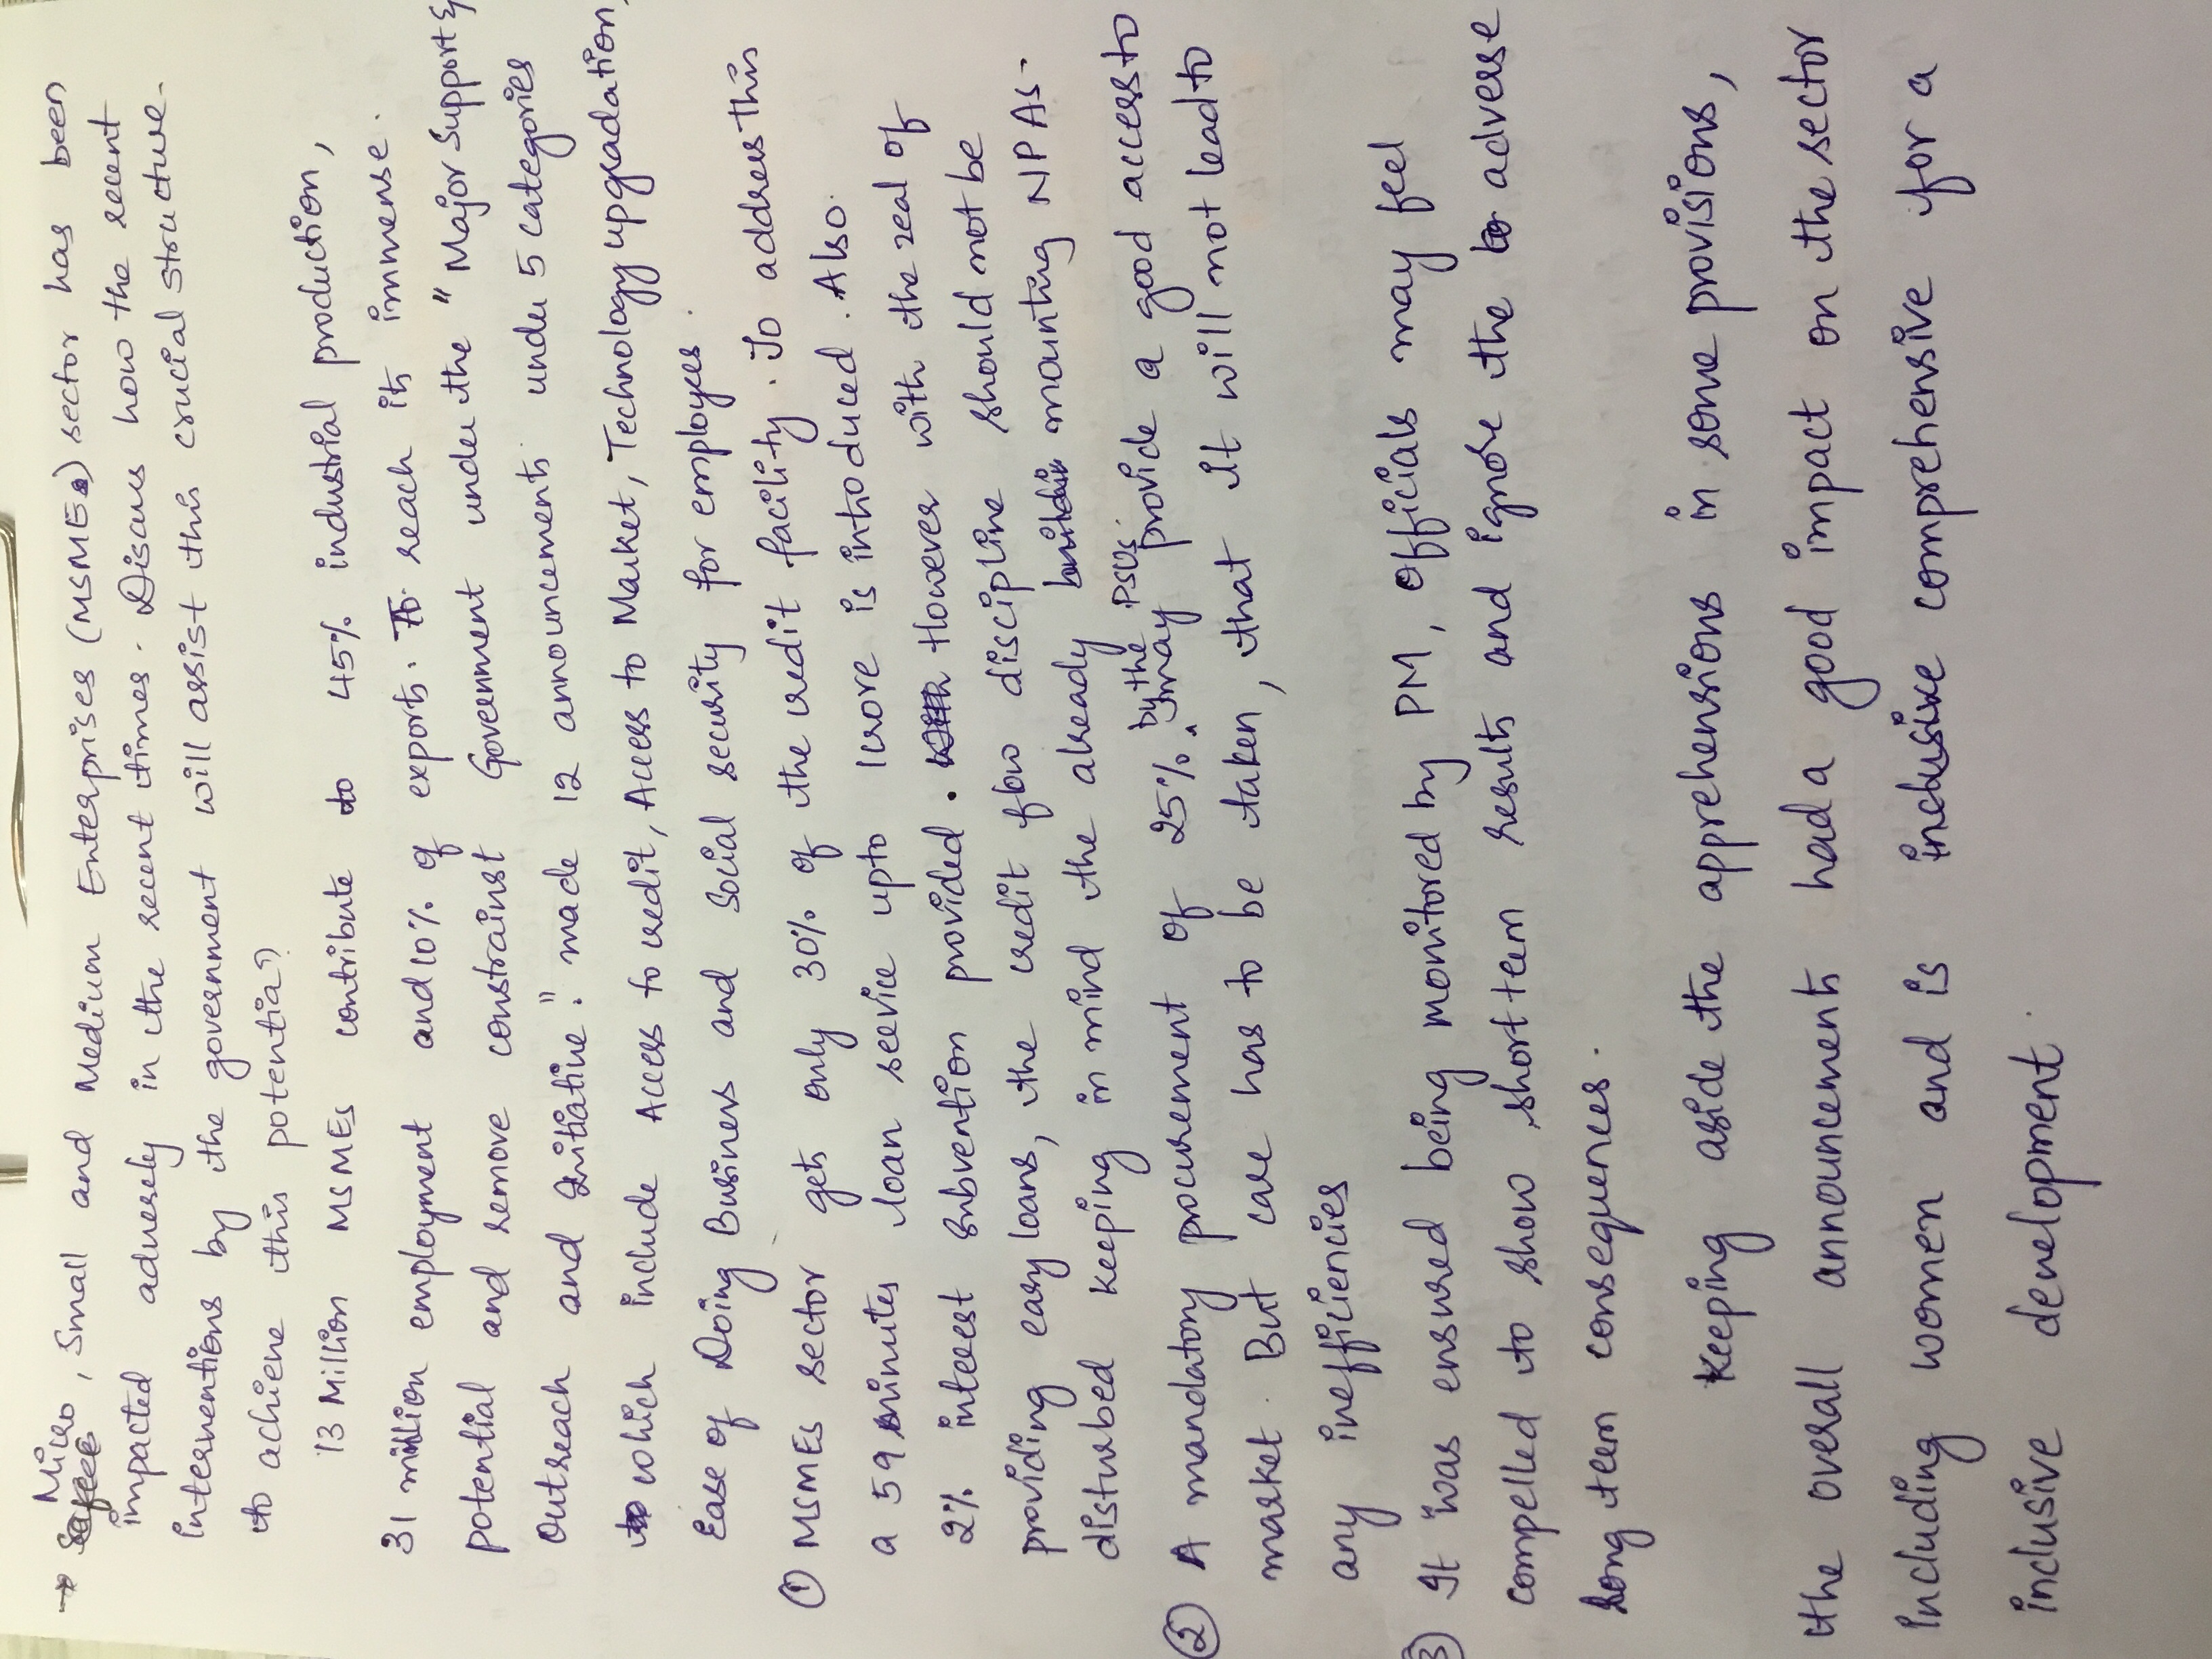 → Micro, Small and Medium Enterprises (MSMEs) sector has been
impacted adversely in the recent times. Discuss how the recent
interventions by the government will assist this crucial structure
to achieve this potential?
13 Million MSMEs contribute to 45% industrial production,
31 million employment and 10% of exports. To reach its immense
potential and remove constrainst Government under the "Major Support &
Outreach and Initiative." made 12 announcements under 5 categories
which include Access to credit, Access to Market, Technology upgradation,
Ease of Doing Business and Social security for employees.
① MSMEs sector gets only 30% of the credit facility. To address this
a 59 minutes loan service upto 1 crore is introduced. Also
2% interest subvention provided. However with the zeal of
providing easy loans, the credit flow discipline should not be
disturbed keeping in mind the already mounting NPAs.
② A mandatory procurement of 25% by the PSUs may provide a good access to
market. But care has to be taken, that it will not lead to
any inefficiencies
③ It was ensured being monitored by PM, officials may feel
compelled to show short term results and ignore the adverse
long term consequences.
Keeping aside the apprehensions in some provisions,
the overall announcements had a good impact on the sector
including women and is comprehensive for a
inclusive development.